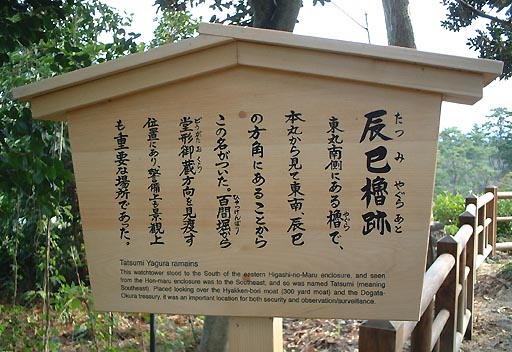 辰巳櫓跡
たつみやぐらあと
東丸南側にある櫓で、
やぐら
本丸から見て東南、辰巳
の方角にあることから
この名がついた。百間堀から
ひゃっけんぼり
堂形御蔵方向を見渡す
どうがたおくら
位置にあり警備上も景観上
も重要な場所であった。
Tatsumi Yagura ramains
This watchtower stood to the South of the eastern Higashi-no-Maru enclosure, and seen
from the Hon-maru enclosure was to the Southeast, and so was named Tatsumi (meaning
Southeast). Placed looking over the Hyakken-bori moat (300 yard moat) and the Dogata-
Okura treasury, it was an important location for both security and observation/surveillance.